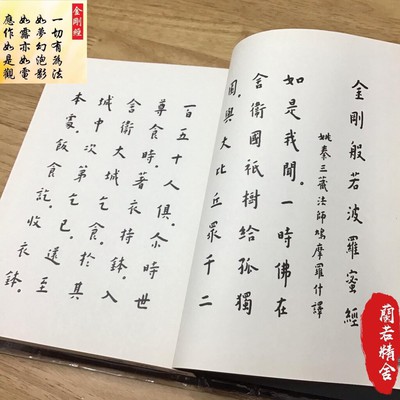 金剛經
一切有為法
如夢幻泡影
如露亦如電
應作如是觀
金剛般若波羅蜜經
姚秦三藏法師鳩摩羅什譯
如是我聞。一時佛在
舍衛國祇樹給孤獨
園。與大比丘眾千二
百五十人俱。尒時世
尊食時。著衣持鉢。入
舍衛大城乞食。於其
城中次第乞已。還至
本處。飯食訖。收衣鉢。
蘭若精舍